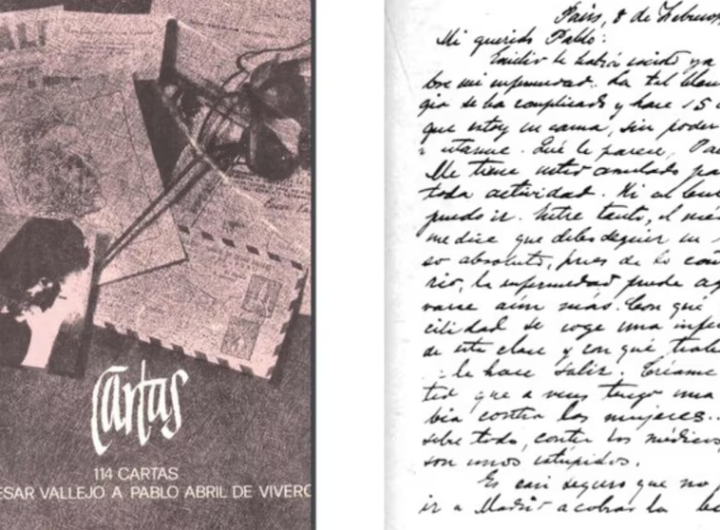 ALI
Cartas
114 CARTAS
ESAR VALLEJO A PABLO ABRIL DE VIVERO
París, 8 de Febrero,
Mi querido Pablo:
Emilio le habrá escrito ya
bre mi enfermedad. La tal blen
gia se ha complicado y hace 15
que estoy en cama, sin poder
Qué le parece, Pa
Me tiene anulado pa
toda actividad. Ni al
puedo ir. Entre tanto, el mé
me dice que debo seguir en
so absoluto, pues de lo con
rio, la enfermedad puede ag
varse aún más. Con qué
cilidad se coge una infec
de esta clase y con qué traba
le hace salir. Créame
ted que a veces tengo una
bia contra las mujeres..
sobre todo, contra los médicos,
son unos estúpidos.
Es casi seguro que no p
ir a Madrid a cobrar la be